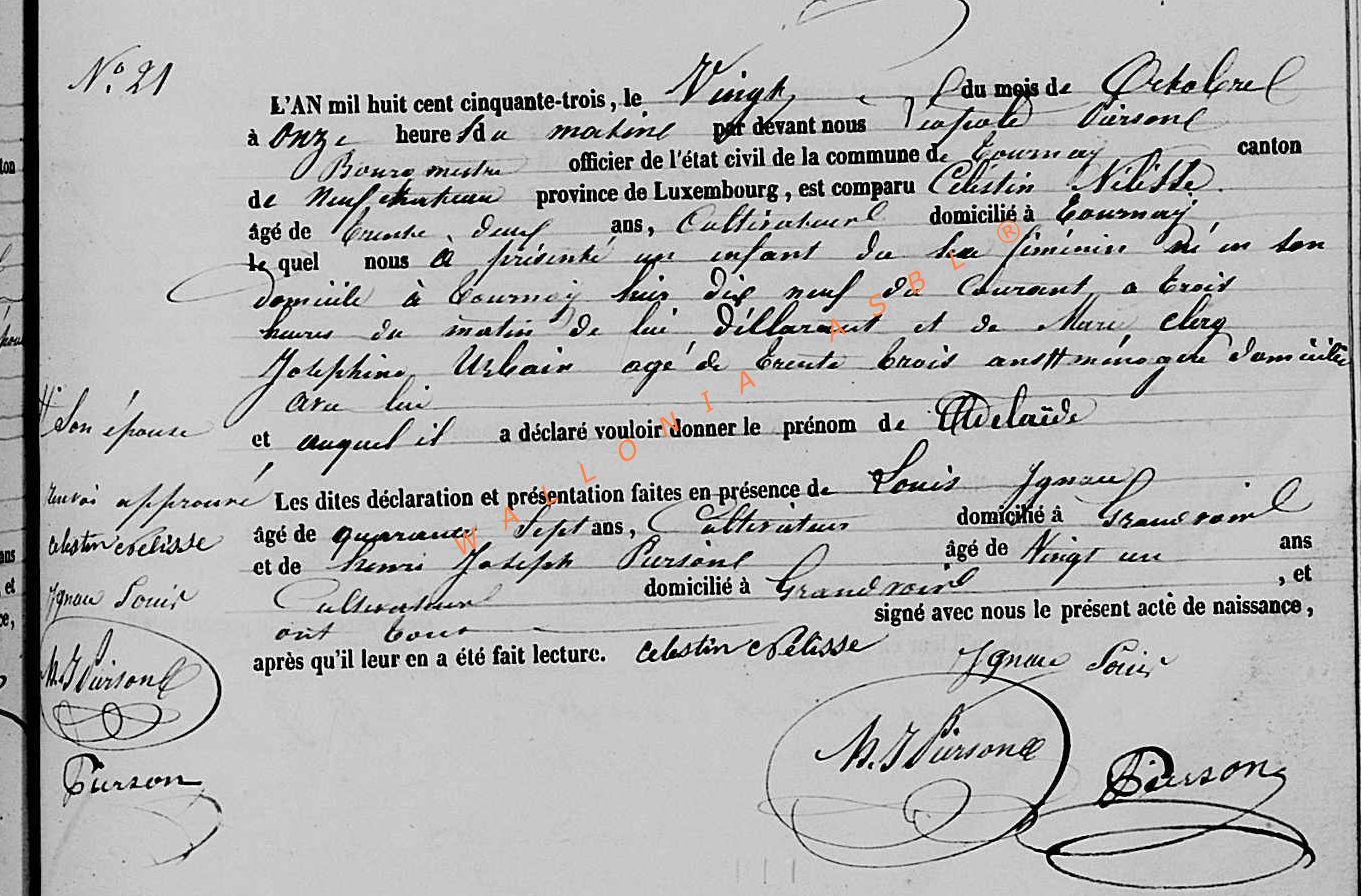 N.º 21
L'AN mil huit cent cinquante-trois, le Vingt du mois de Octobre
à Onze heures du matin par devant nous Pierson
Bourgmestre officier de l'état civil de la commune de Tournay canton
de Neufchateau province de Luxembourg, est comparu Celestin Nélisse
âgé de trente neuf ans, Cultivateur domicilié à Tournay
le quel nous a présenté un enfant du sex féminin né en son
domicile à Tournay hier dix neuf du Courant a trois
heures du matin de lui déllarant et de Marie
Joséphine Urbain agé de trente trois ans # ménagere domicilié
avec lui
# Son épouse
et auquel il a déclaré vouloir donner le prénom de Adelaïde
renvoi approuvé
Les dites déclaration et présentation faites en présence de Louis Ignace
âgé de quarante Sept ans, Cultivateur domicilié à Grandvoir
celestin Nelisse
et de henri Joseph Pierson âgé de Vingt un ans
Ignace Louis
Cultivateur domicilié à Grandvoir, et
ont tous signé avec nous le présent acte de naissance,
après qu'il leur en a été fait lecture. celestin Nelisse Ignace Louis
H. J Pierson
H. J Pierson Pierson
Pierson
WALLONIA ASBL ®